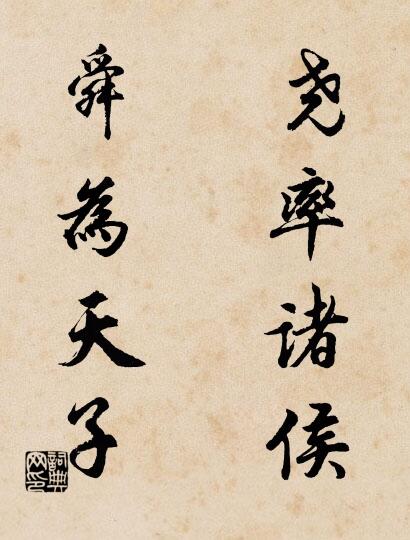 尧率诸侯
舜為天子
詞典网印